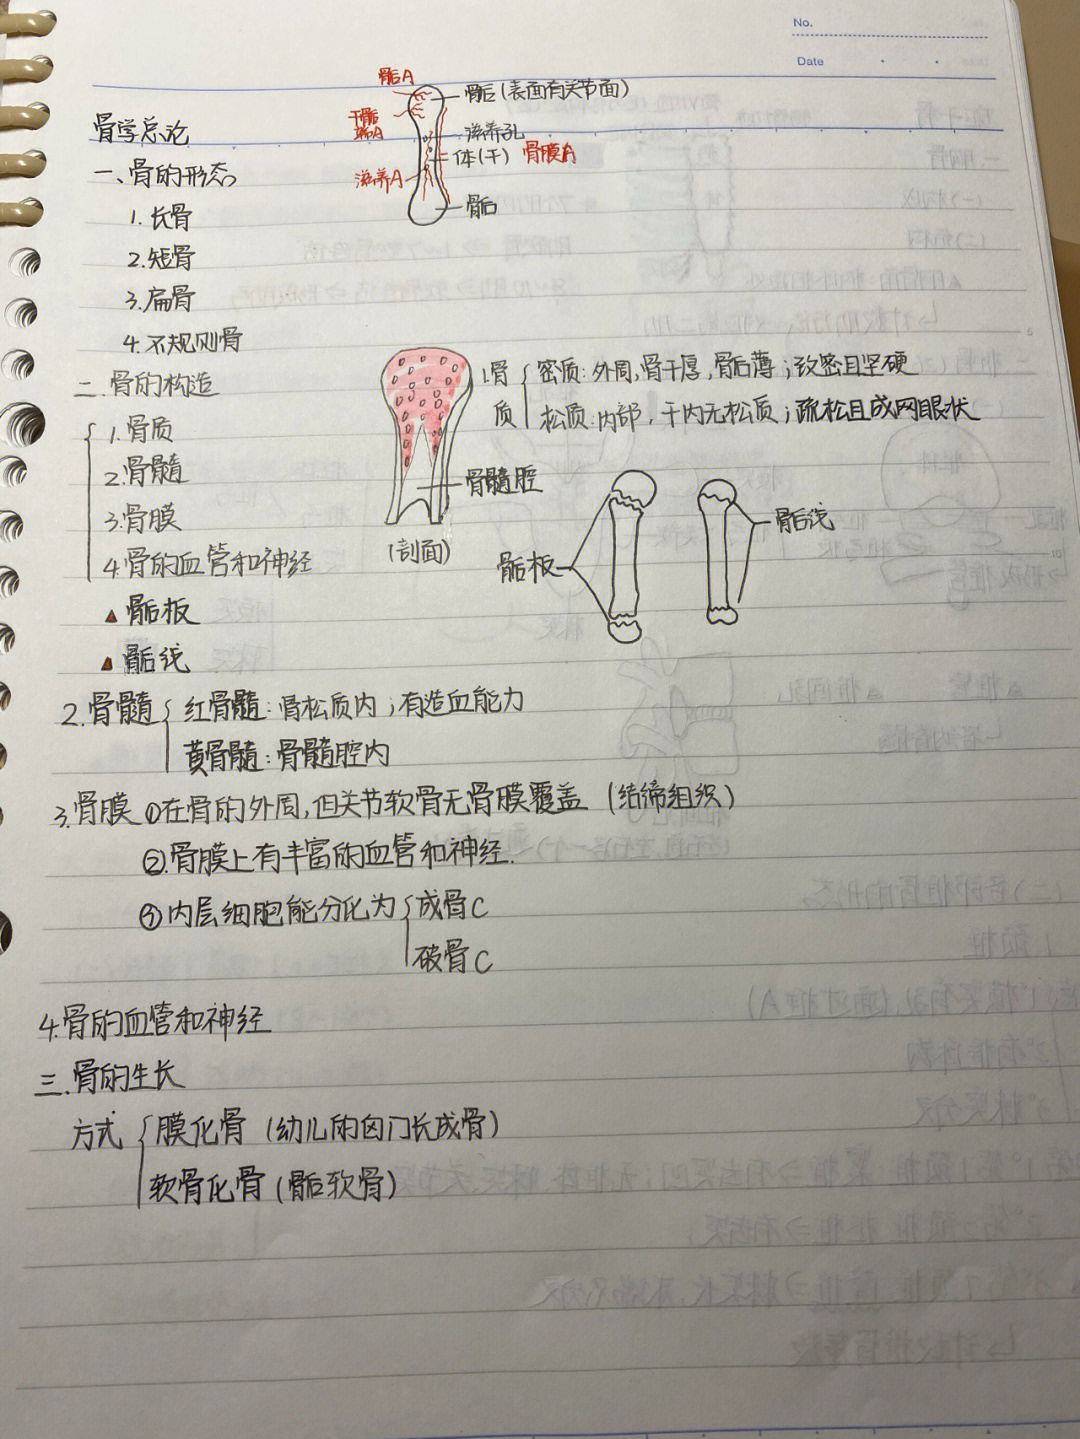 No.
Date
骨学总论
骨骺A
骨骺(表面有关节面)
干骺端A
滋养孔
体(干)
骨膜A
滋养A
骨骺
一、骨的形态
1.长骨
2.短骨
3.扁骨
4.不规则骨
二.骨的构造
1.骨质
2.骨髓
3.骨膜
4.骨的血管和神经
▲骨骺板
▲骨骺线
1.骨质
密质:外周,骨干厚,骨骺薄;致密且坚硬
松质:内部,干内无松质;疏松且成网眼状
骨髓腔
(剖面)
骨骺板
骨骺线
2.骨髓
红骨髓:骨松质内;有造血能力
黄骨髓:骨髓腔内
3.骨膜 ①在骨的外周,但关节软骨无骨膜覆盖(结缔组织)
②骨膜上有丰富的血管和神经.
③内层细胞能分化为
成骨C
破骨C
4.骨的血管和神经
三.骨的生长
方式
膜化骨(幼儿的囟门长成骨)
软骨化骨(骨骺软骨)